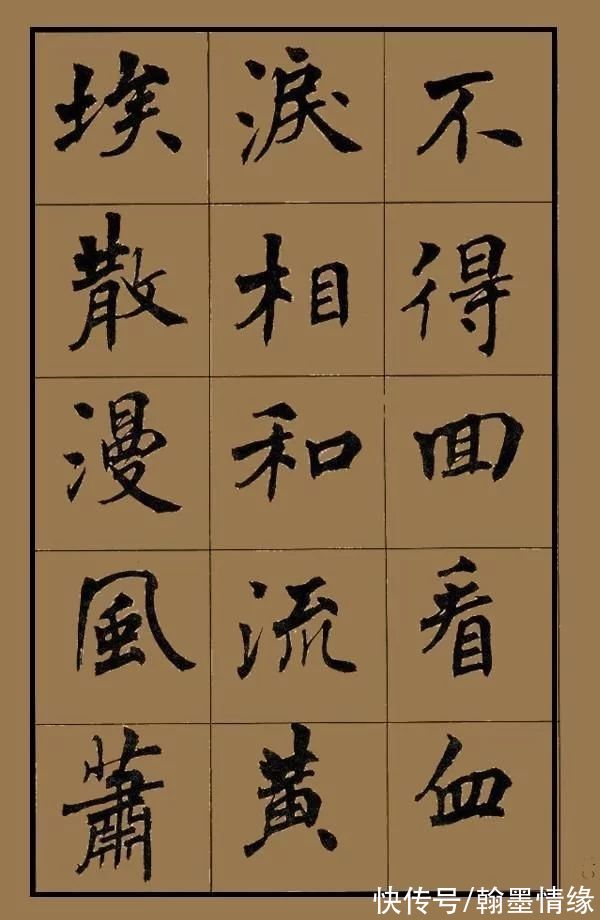 不得回看血
淚相和流黃
埃散漫風蕭
快传号/翰墨情缘